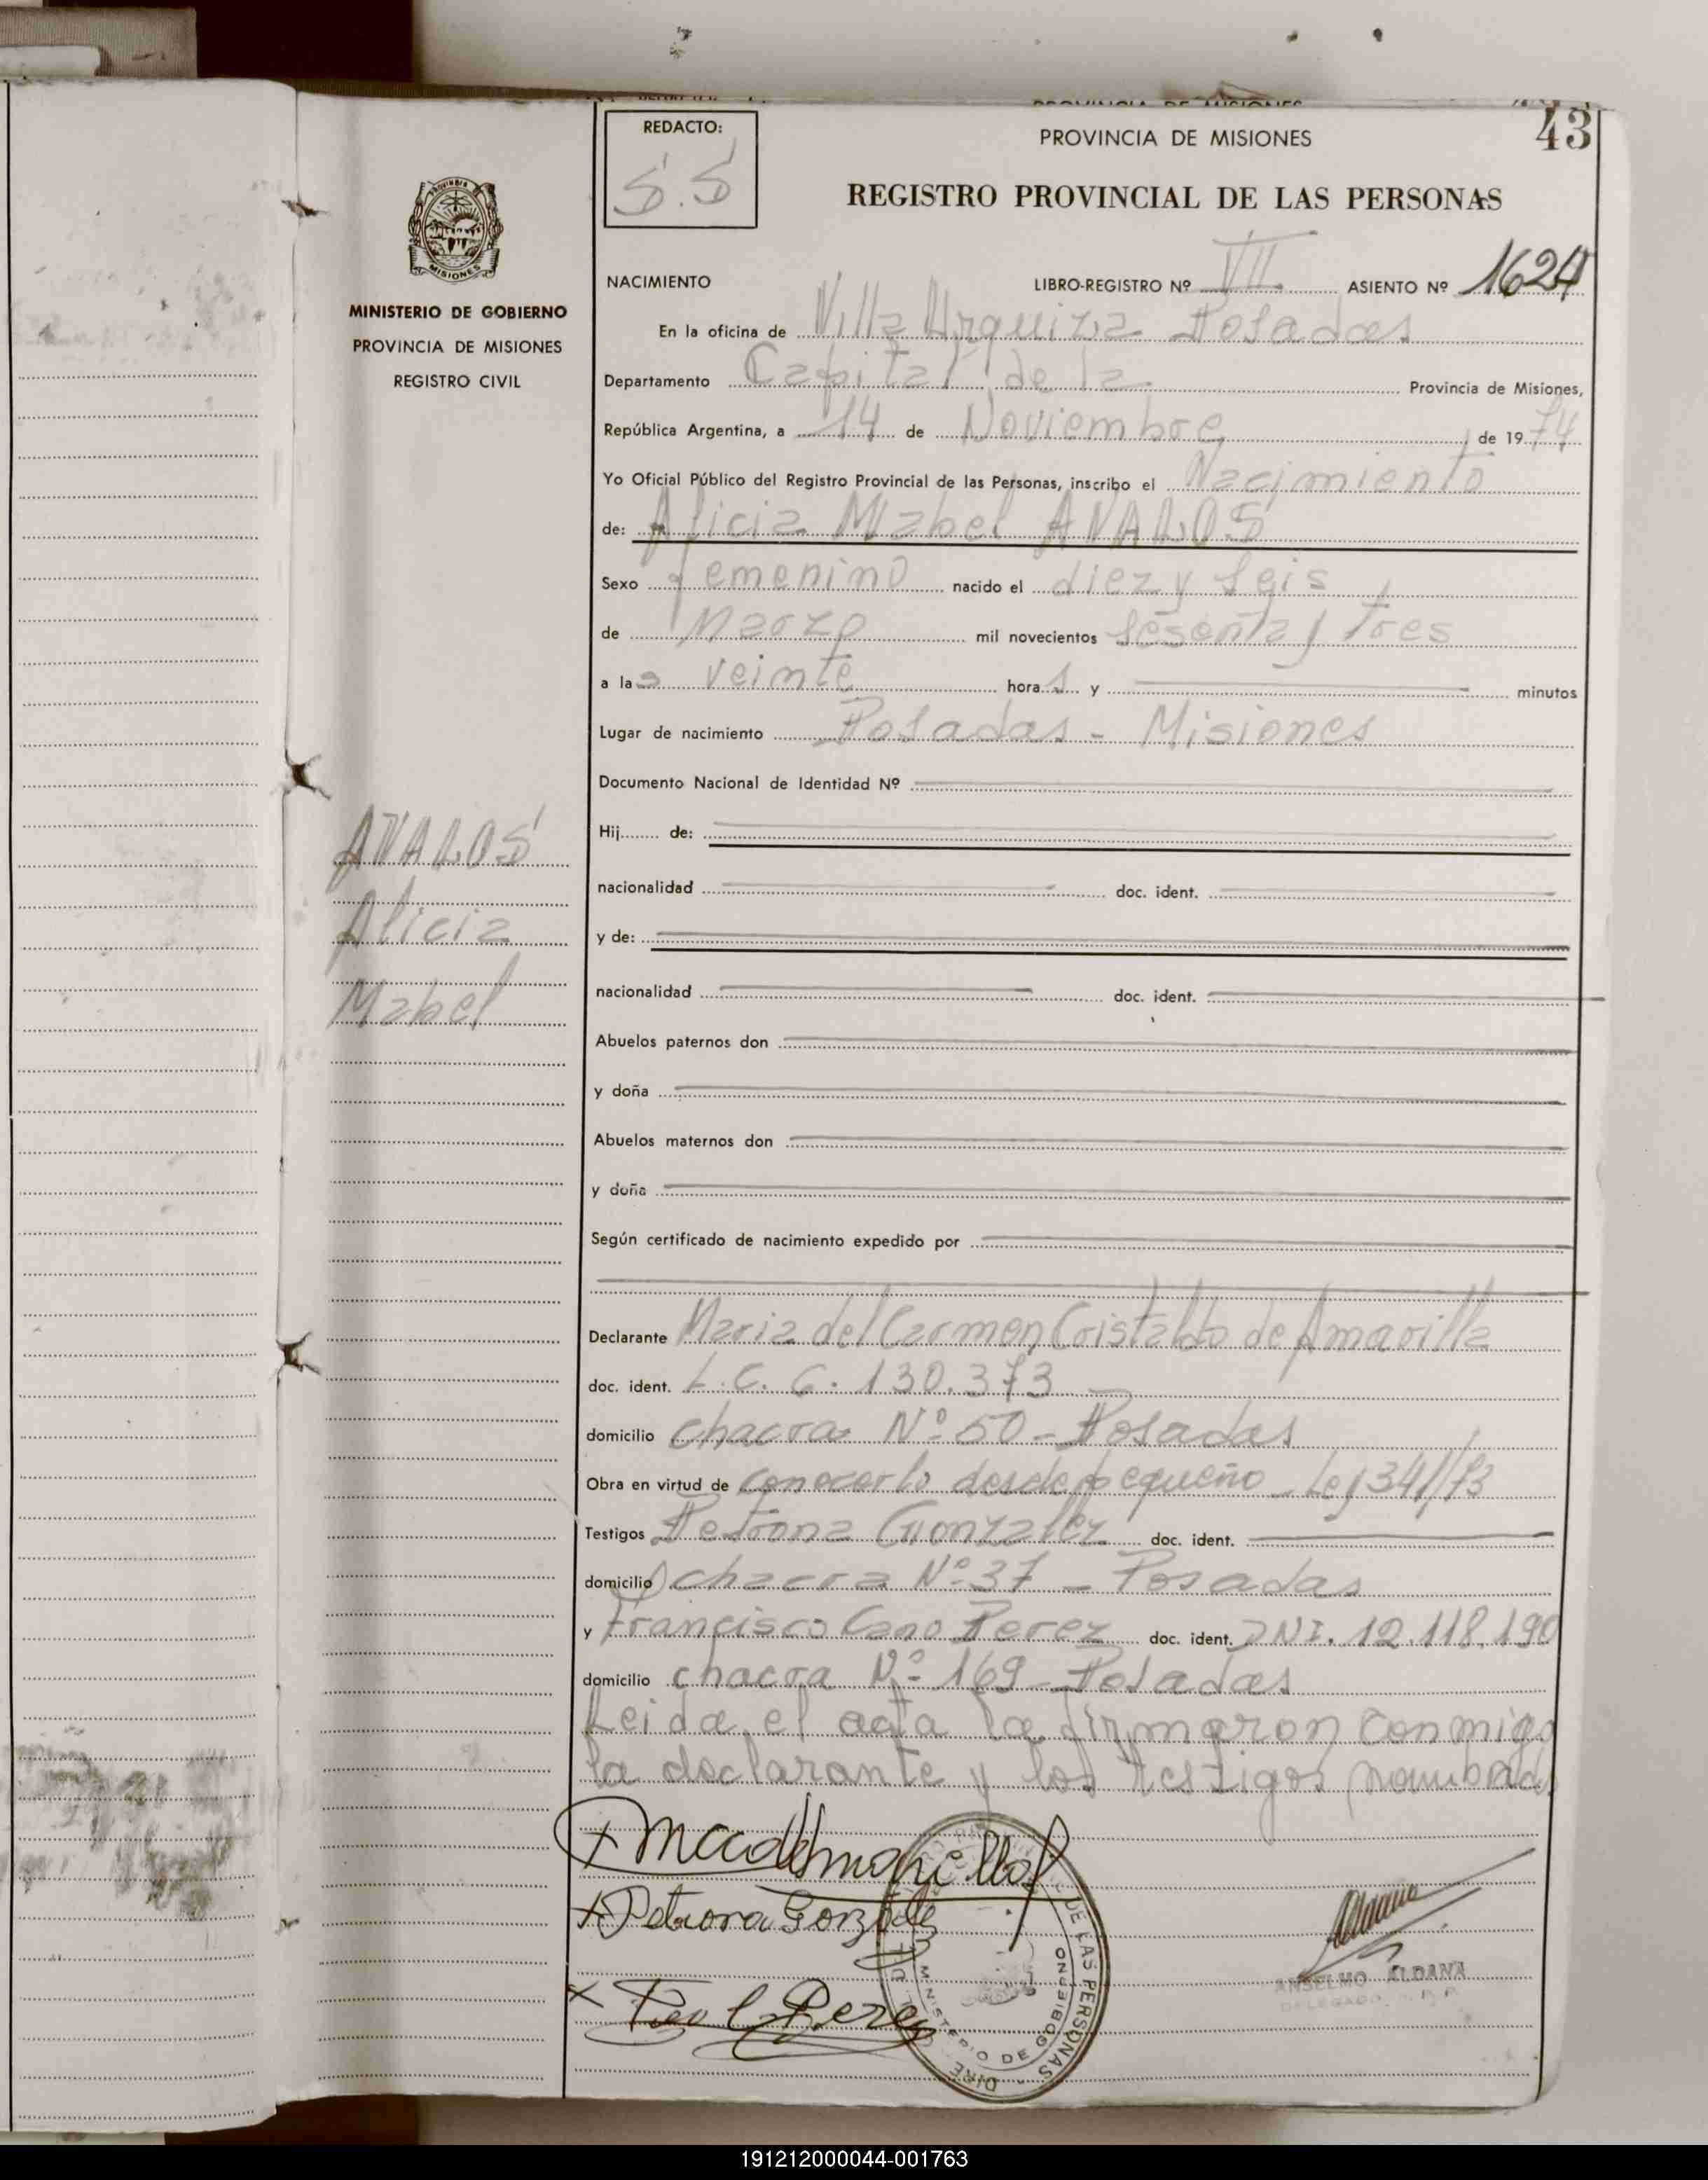 43
REDACTO:
S.S
PROVINCIA DE MISIONES
REGISTRO PROVINCIAL DE LAS PERSONAS
PROVINCIA
MISIONES
MINISTERIO DE GOBIERNO
PROVINCIA DE MISIONES
REGISTRO CIVIL
NACIMIENTO LIBRO-REGISTRO Nº VII ASIENTO Nº 1624
En la oficina de Villa Urquiza Posadas
Departamento Capital de la Provincia de Misiones,
República Argentina, a 14 de Noviembre de 1974
Yo Oficial Público del Registro Provincial de las Personas, inscribo el Nacimiento
de: Alicia Mabel AVALOS
Sexo femenino nacido el diez y seis
de Marzo mil novecientos sesenta y tres
a las veinte horas y minutos
Lugar de nacimiento Posadas - Misiones
Documento Nacional de Identidad Nº
Hij de:
nacionalidad doc. ident.
y de:
nacionalidad doc. ident.
AVALOS
Alicia
Mabel
Abuelos paternos don
y doña
Abuelos maternos don
y doña
Según certificado de nacimiento expedido por
Declarante Maria del Carmen Cristaldo de Amarilla
doc. ident. L.C. 6.130.373
domicilio chacra Nº 50 - Posadas
Obra en virtud de conocerlo desde pequeño - Ley 341/73
Testigos Petrona Gonzalez doc. ident.
domicilio chacra Nº 37 - Posadas
y Francisco Cano Perez doc. ident. DNI. 12.118.190
domicilio chacra Nº 169 - Posadas
Leida el acta la firmaron conmigo
la declarante y los testigos nombrad
Petrona Gonzalez
Perez
DE LAS PERSONAS
MINISTERIO DE GOBIERNO
ANSELMO ALDANA
DELEGADO R. P. P.
191212000044-001763